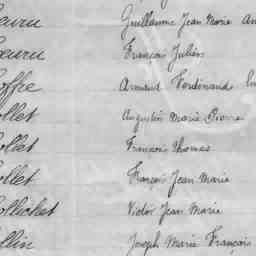 Guillaume Jean Marie
François Julien
Armand Ferdinand
ollet Augustin Marie Pierre
ollet François Thomas
ollet François Jean Marie
ollichet Victor Jean Marie
ollin Joseph Marie François